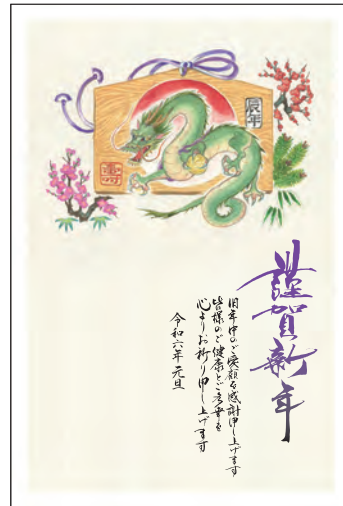 辰年
謹賀新年
旧年中のご愛顧を感謝申し上げます
皆様のご健康とご多幸を
心よりお祈り申し上げます
令和六年元旦